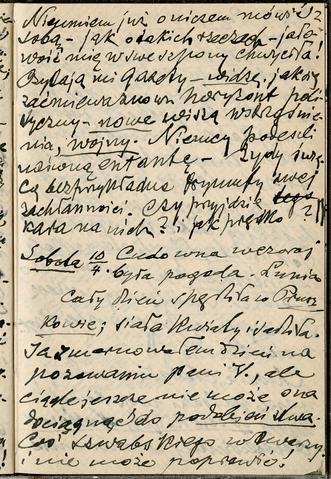 Nie umiem już o niczem mówić z
sobą – jak o takich rzeczach – jało-
wość mię w swe szpony chwyciła!
Czytają mi gazety – widzę, jak się
zaciemnia znowu horyzont poli-
tyczny – nowe wiszą wstrząśnie-
nia, wojny. Niemcy
ententę – Żydzi świę-
cą bezprzykładne tryumfy swej
zachłanności. Czy przyjdzie
kara na nich? i jak prędko?
Sobota 10/4. Cudowna wczoraj
była pogoda. Lunia
cały dzień spędziła w Prusz-
kowie; siała kwiaty i sadziła.
Ja zmarnowałem dzień na
pozowaniu pani V., ale
ciągle jeszcze nie może ona
dociągnąć do podobieństwa.
Coś szwabskiego w twarzy
i nie może poprawić!